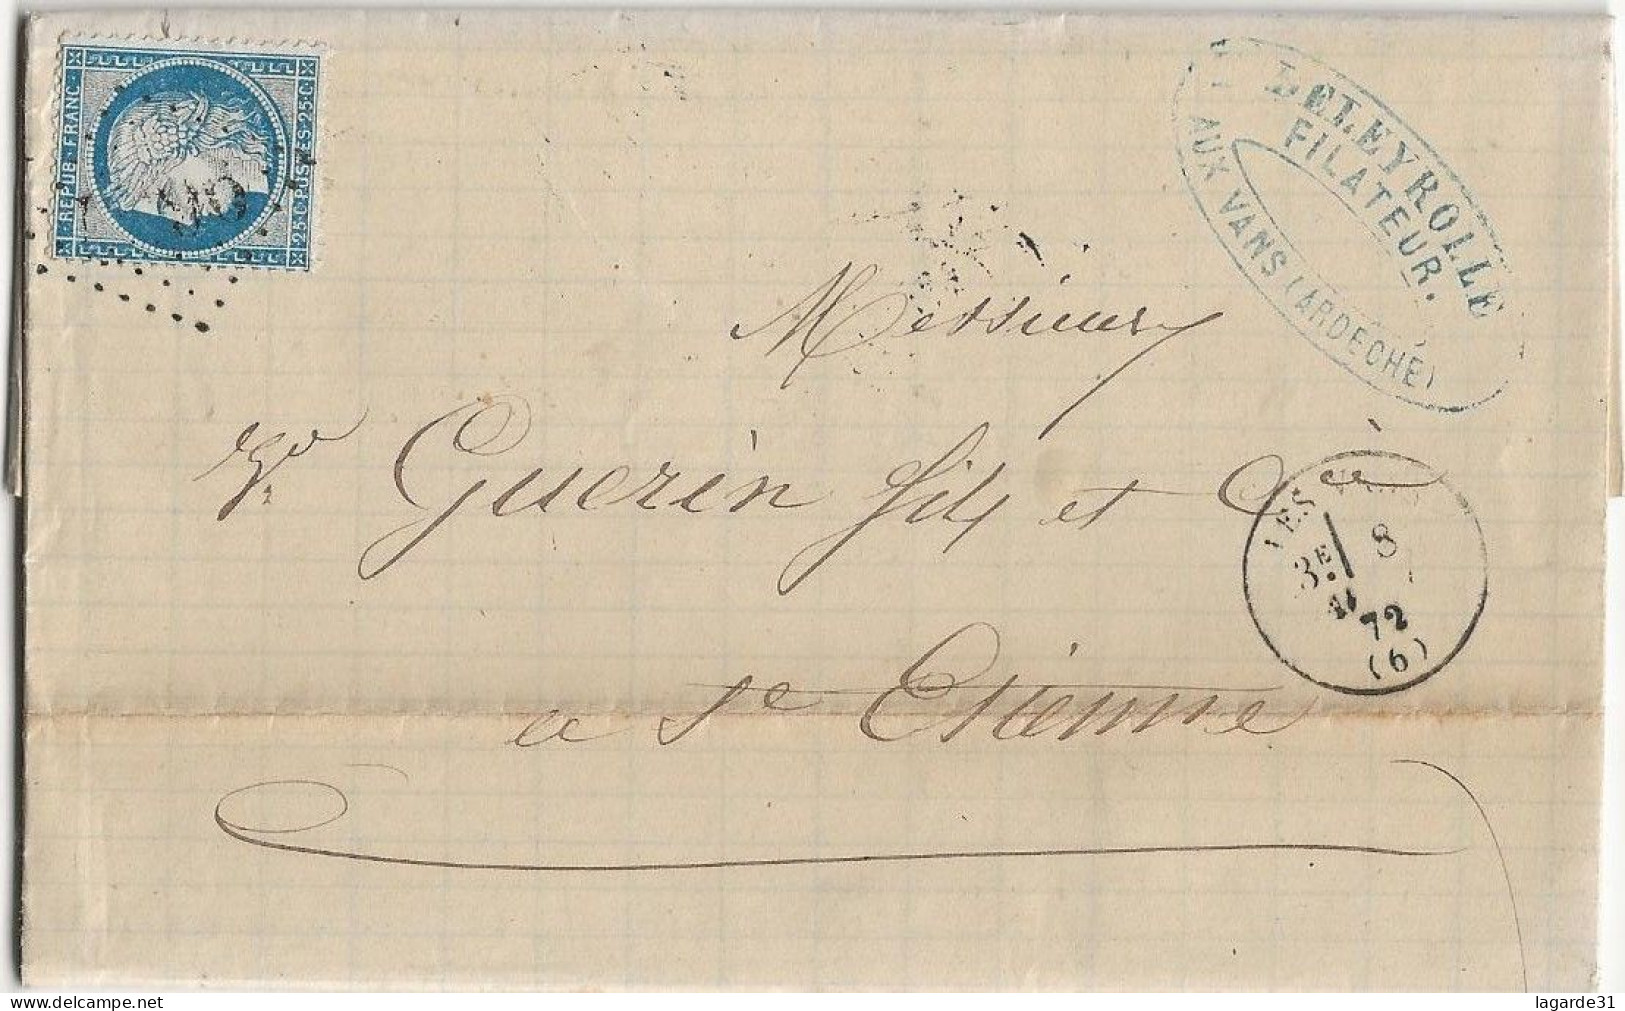 REPUB · FRANC ·
25 · C · POSTES · 25 · C
DELEYROLLE
FILATEUR.
AUX VANS (ARDECHE)
Messieurs
Vve Guerin fils et Cie
a St Etienne
LES VANS
3E 8
72
(6)
lagarde31